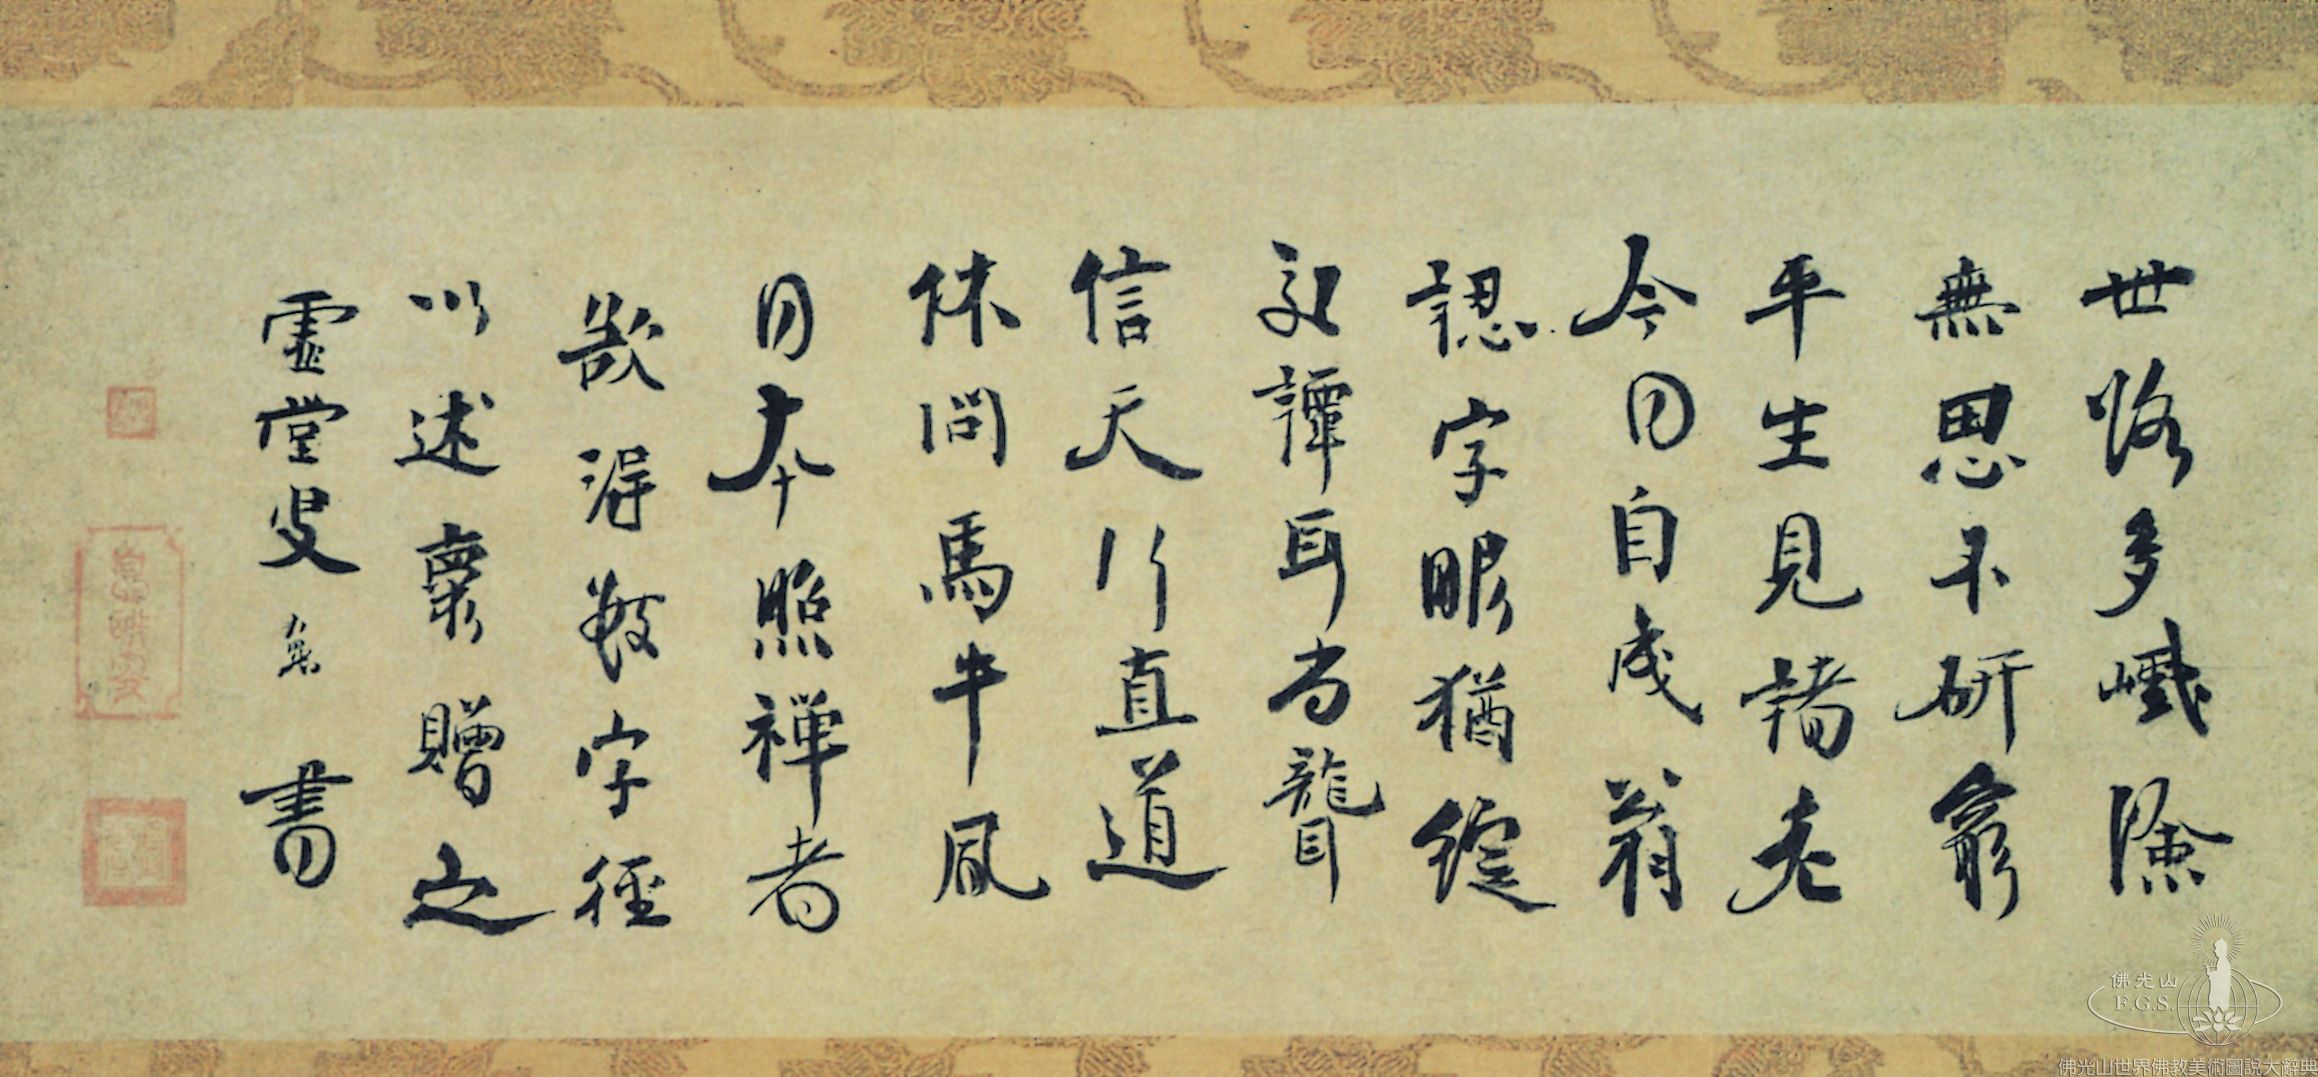 世路多巇險
無思不研窮
平生見諸老
今日自成翁
認字眼猶綻
交譚耳尚聾
信天行直道
休問馬牛風
日本照禪者
欲得數字徑
以述稟贈之
虛堂叟 書
佛光山
F.G.S.
佛光山世界佛教美術圖說大辭典